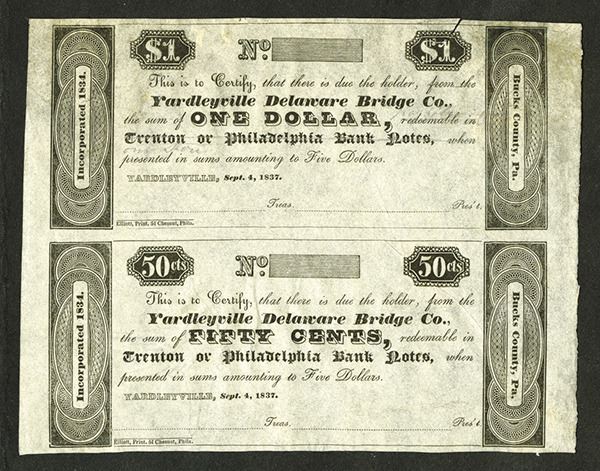 $1 No. $1
Incorporated 1834.
This is to Certify, that there is due the holder, from the
Yardleyville Delaware Bridge Co.,
the sum of ONE DOLLAR, redeemable in
Trenton or Philadelphia Bank Notes, when
presented in sums amounting to Five Dollars.
YARDLEYVILLE, Sept. 4, 1837.
Treas. Pres't.
Bucks County, Pa.
Elliott, Print. 51 Chesnut, Phila.
50cts. No. 50cts.
Incorporated 1834.
This is to Certify, that there is due the holder, from the
Yardleyville Delaware Bridge Co.,
the sum of FIFTY CENTS, redeemable in
Trenton or Philadelphia Bank Notes, when
presented in sums amounting to Five Dollars.
YARDLEYVILLE, Sept. 4, 1837.
Treas. Pres't.
Bucks County, Pa.
Elliott, Print. 51 Chesnut, Phila.